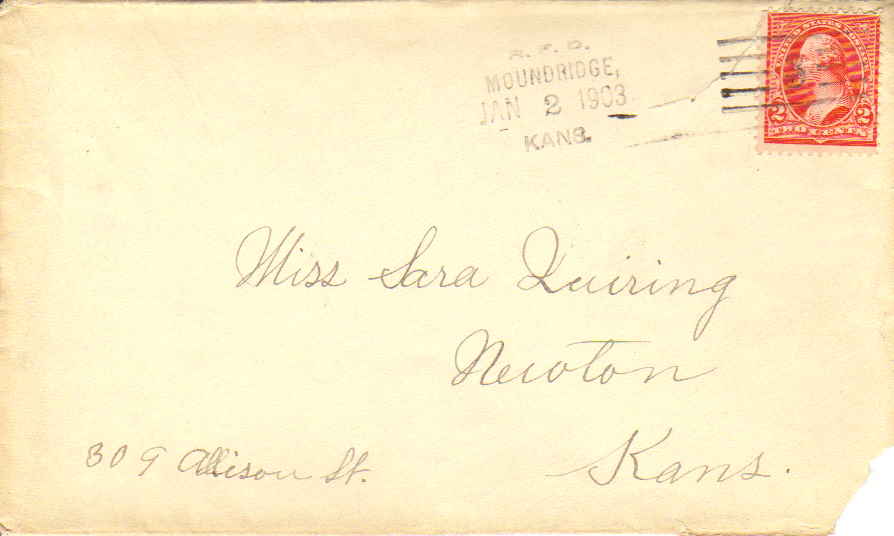 R. F. D.
MOUNDRIDGE,
JAN 2 1903
KANS.
UNITED STATES POSTAGE
2 2
TWO CENTS
Miss Sara Quiring
Newton
Kans.
309 Allison St.